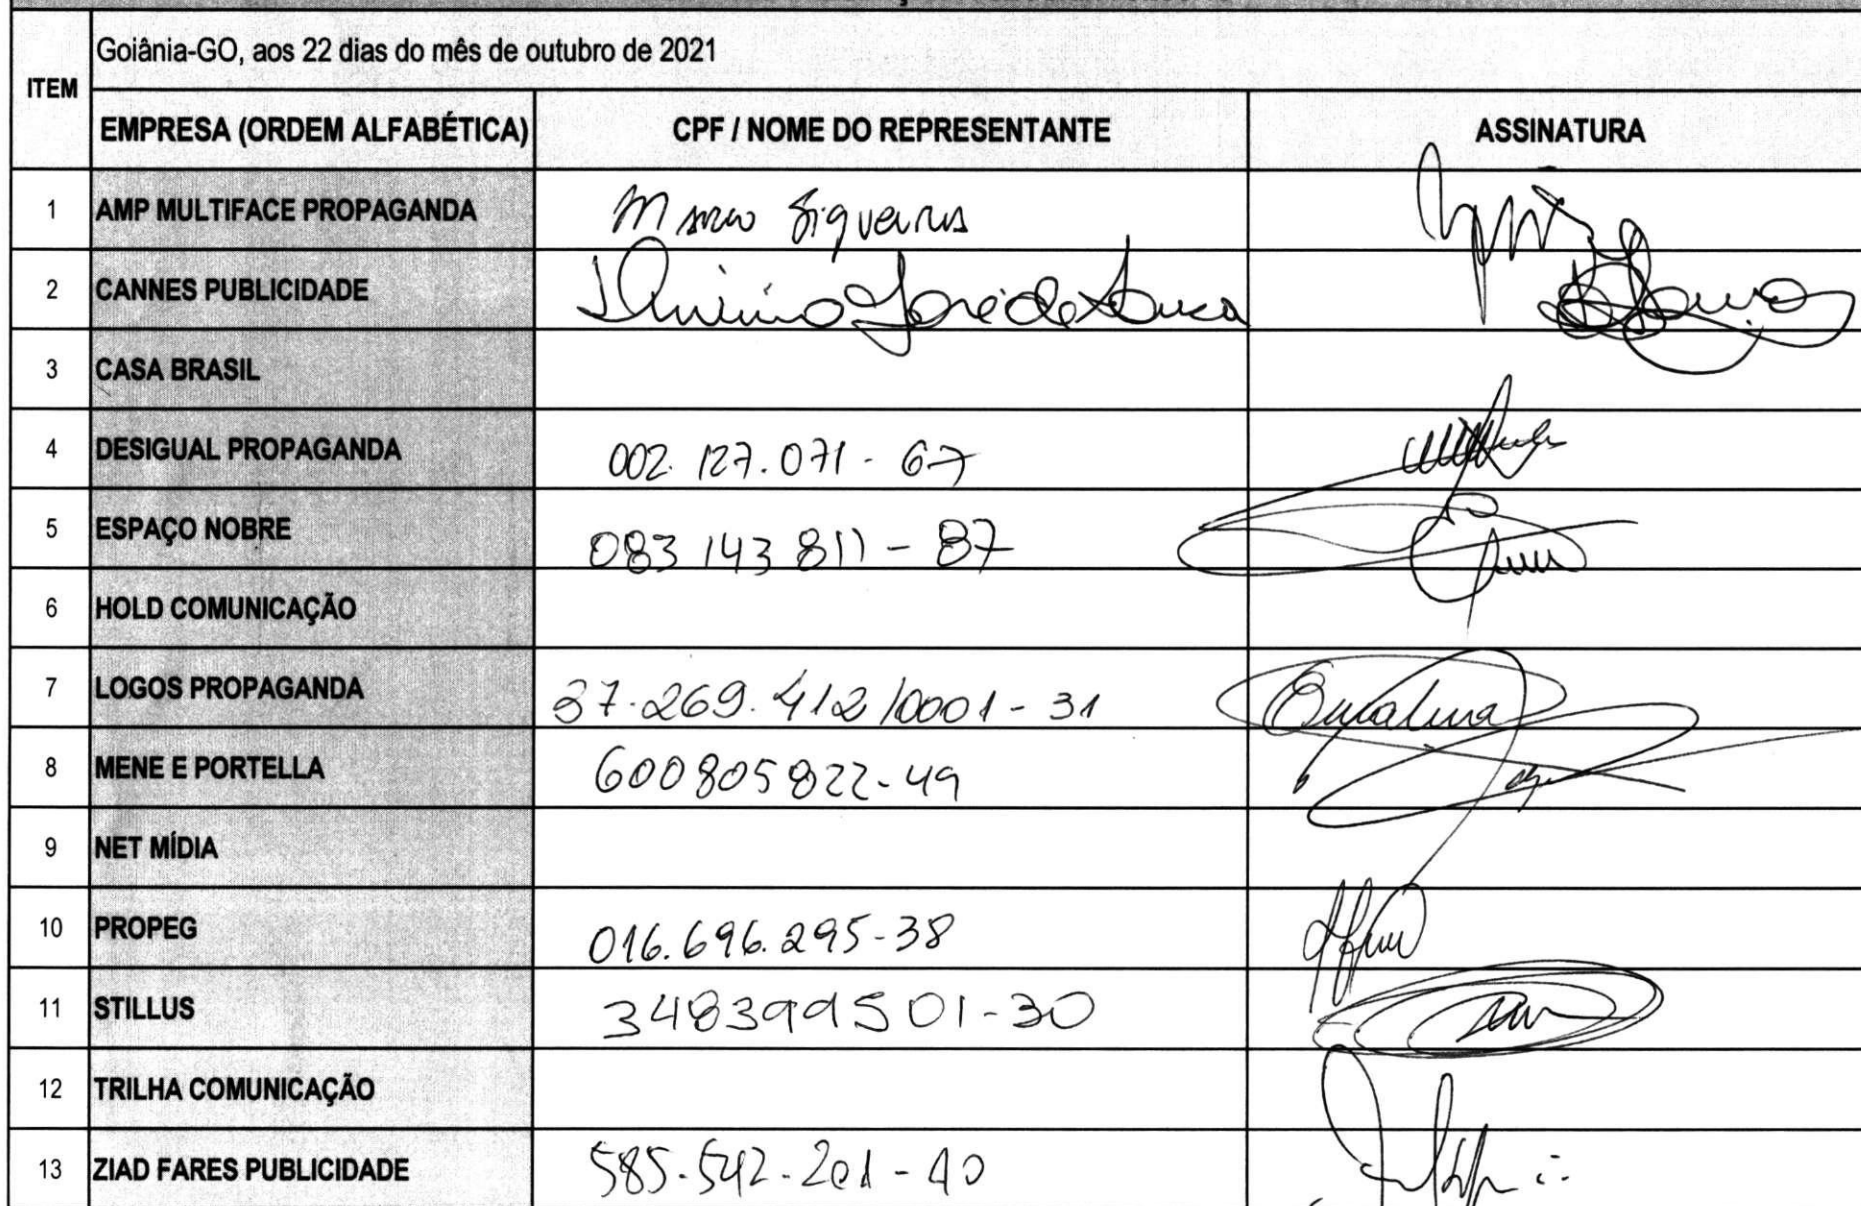 Goiânia-GO, aos 22 dias do mês de outubro de 2021
ITEM
EMPRESA (ORDEM ALFABÉTICA) CPF / NOME DO REPRESENTANTE ASSINATURA
1 AMP MULTIFACE PROPAGANDA Marco Siqueira
2 CANNES PUBLICIDADE José de Souza
3 CASA BRASIL
4 DESIGUAL PROPAGANDA 002.127.071-67
5 ESPAÇO NOBRE 083 143 811-87
6 HOLD COMUNICAÇÃO
7 LOGOS PROPAGANDA 37.269.412/0001-31
8 MENE E PORTELLA 600805822-49
9 NET MÍDIA
10 PROPEG 016.696.295-38
11 STILLUS 348399501-30
12 TRILHA COMUNICAÇÃO
13 ZIAD FARES PUBLICIDADE 585.542.201-40